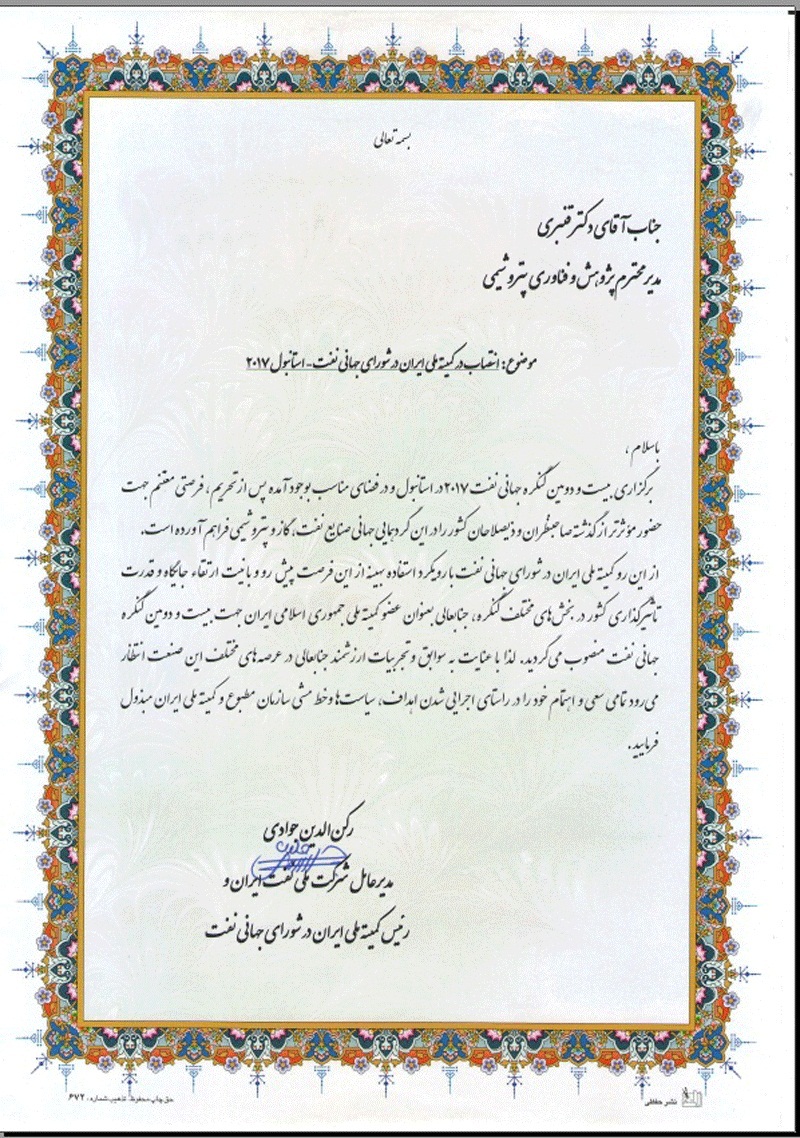 بسمه تعالی
جناب آقای دکتر قنبری
مدیر محترم پژوهش و فناوری پتروشیمی
موضوع: انتصاب در کمیته ملی ایران در شورای جهانی نفت - استانبول ۲۰۱۷
باسلام ،
برگزاری بیست و دومین کنگره جهانی نفت ۲۰۱۷ در استانبول و در فضای مناسب بوجود آمده پس از تحریم ، فرصتی مغتنم جهت
حضور مؤثرتر از گذشته صاحبنظران و ذیصلاحان کشور را در این گردهمایی جهانی صنایع نفت، گاز و پتروشیمی فراهم آورده است.
از این رو کمیته ملی ایران در شورای جهانی نفت با رویکرد استفاده بهینه از این فرصت پیش رو و با نیت ارتقاء جایگاه و قدرت
تاثیرگذاری کشور در بخش‌های مختلف کنگره، جنابعالی بعنوان عضو کمیته ملی جمهوری اسلامی ایران جهت بیست و دومین کنگره
جهانی نفت منصوب می‌گردید. لذا با عنایت به سوابق و تجربیات ارزشمند جنابعالی در عرصه‌های مختلف این صنعت انتظار
می‌رود تمامی سعی و اهتمام خود را در راستای اجرایی شدن اهداف، سیاست‌ها و خط مشی سازمان مطبوع و کمیته ملی ایران مبذول
فرمایید.
رکن‌الدین جوادی
مدیرعامل شرکت ملی نفت ایران و
رئیس کمیته ملی ایران در شورای جهانی نفت
حق چاپ محفوظ تذهیب شماره: ۶۷۲
نشر حفظی